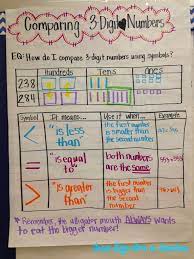 Comparing 3-Digit Numbers
EQ: How do I compare 3-digit numbers using symbols?
Hundreds Tens ones
238
284
Symbol It means... Use it when... Example
<
"is less
than"
the first number
is smaller than
the second
number
=
"is equal
to"
both numbers
are the same
>
"is greater
than"
the first number
is bigger
than the second
number
*Remember, the alligator mouth ALWAYS wants
to eat the bigger number!